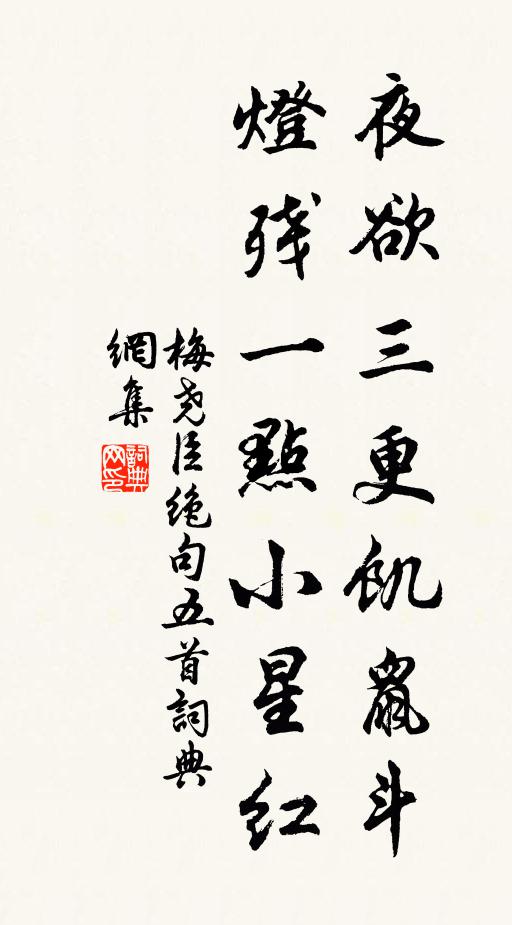 夜欲三更飢鼠斗
燈殘一點小星红
梅尧臣绝句五首詞典
網集
詞典
网印